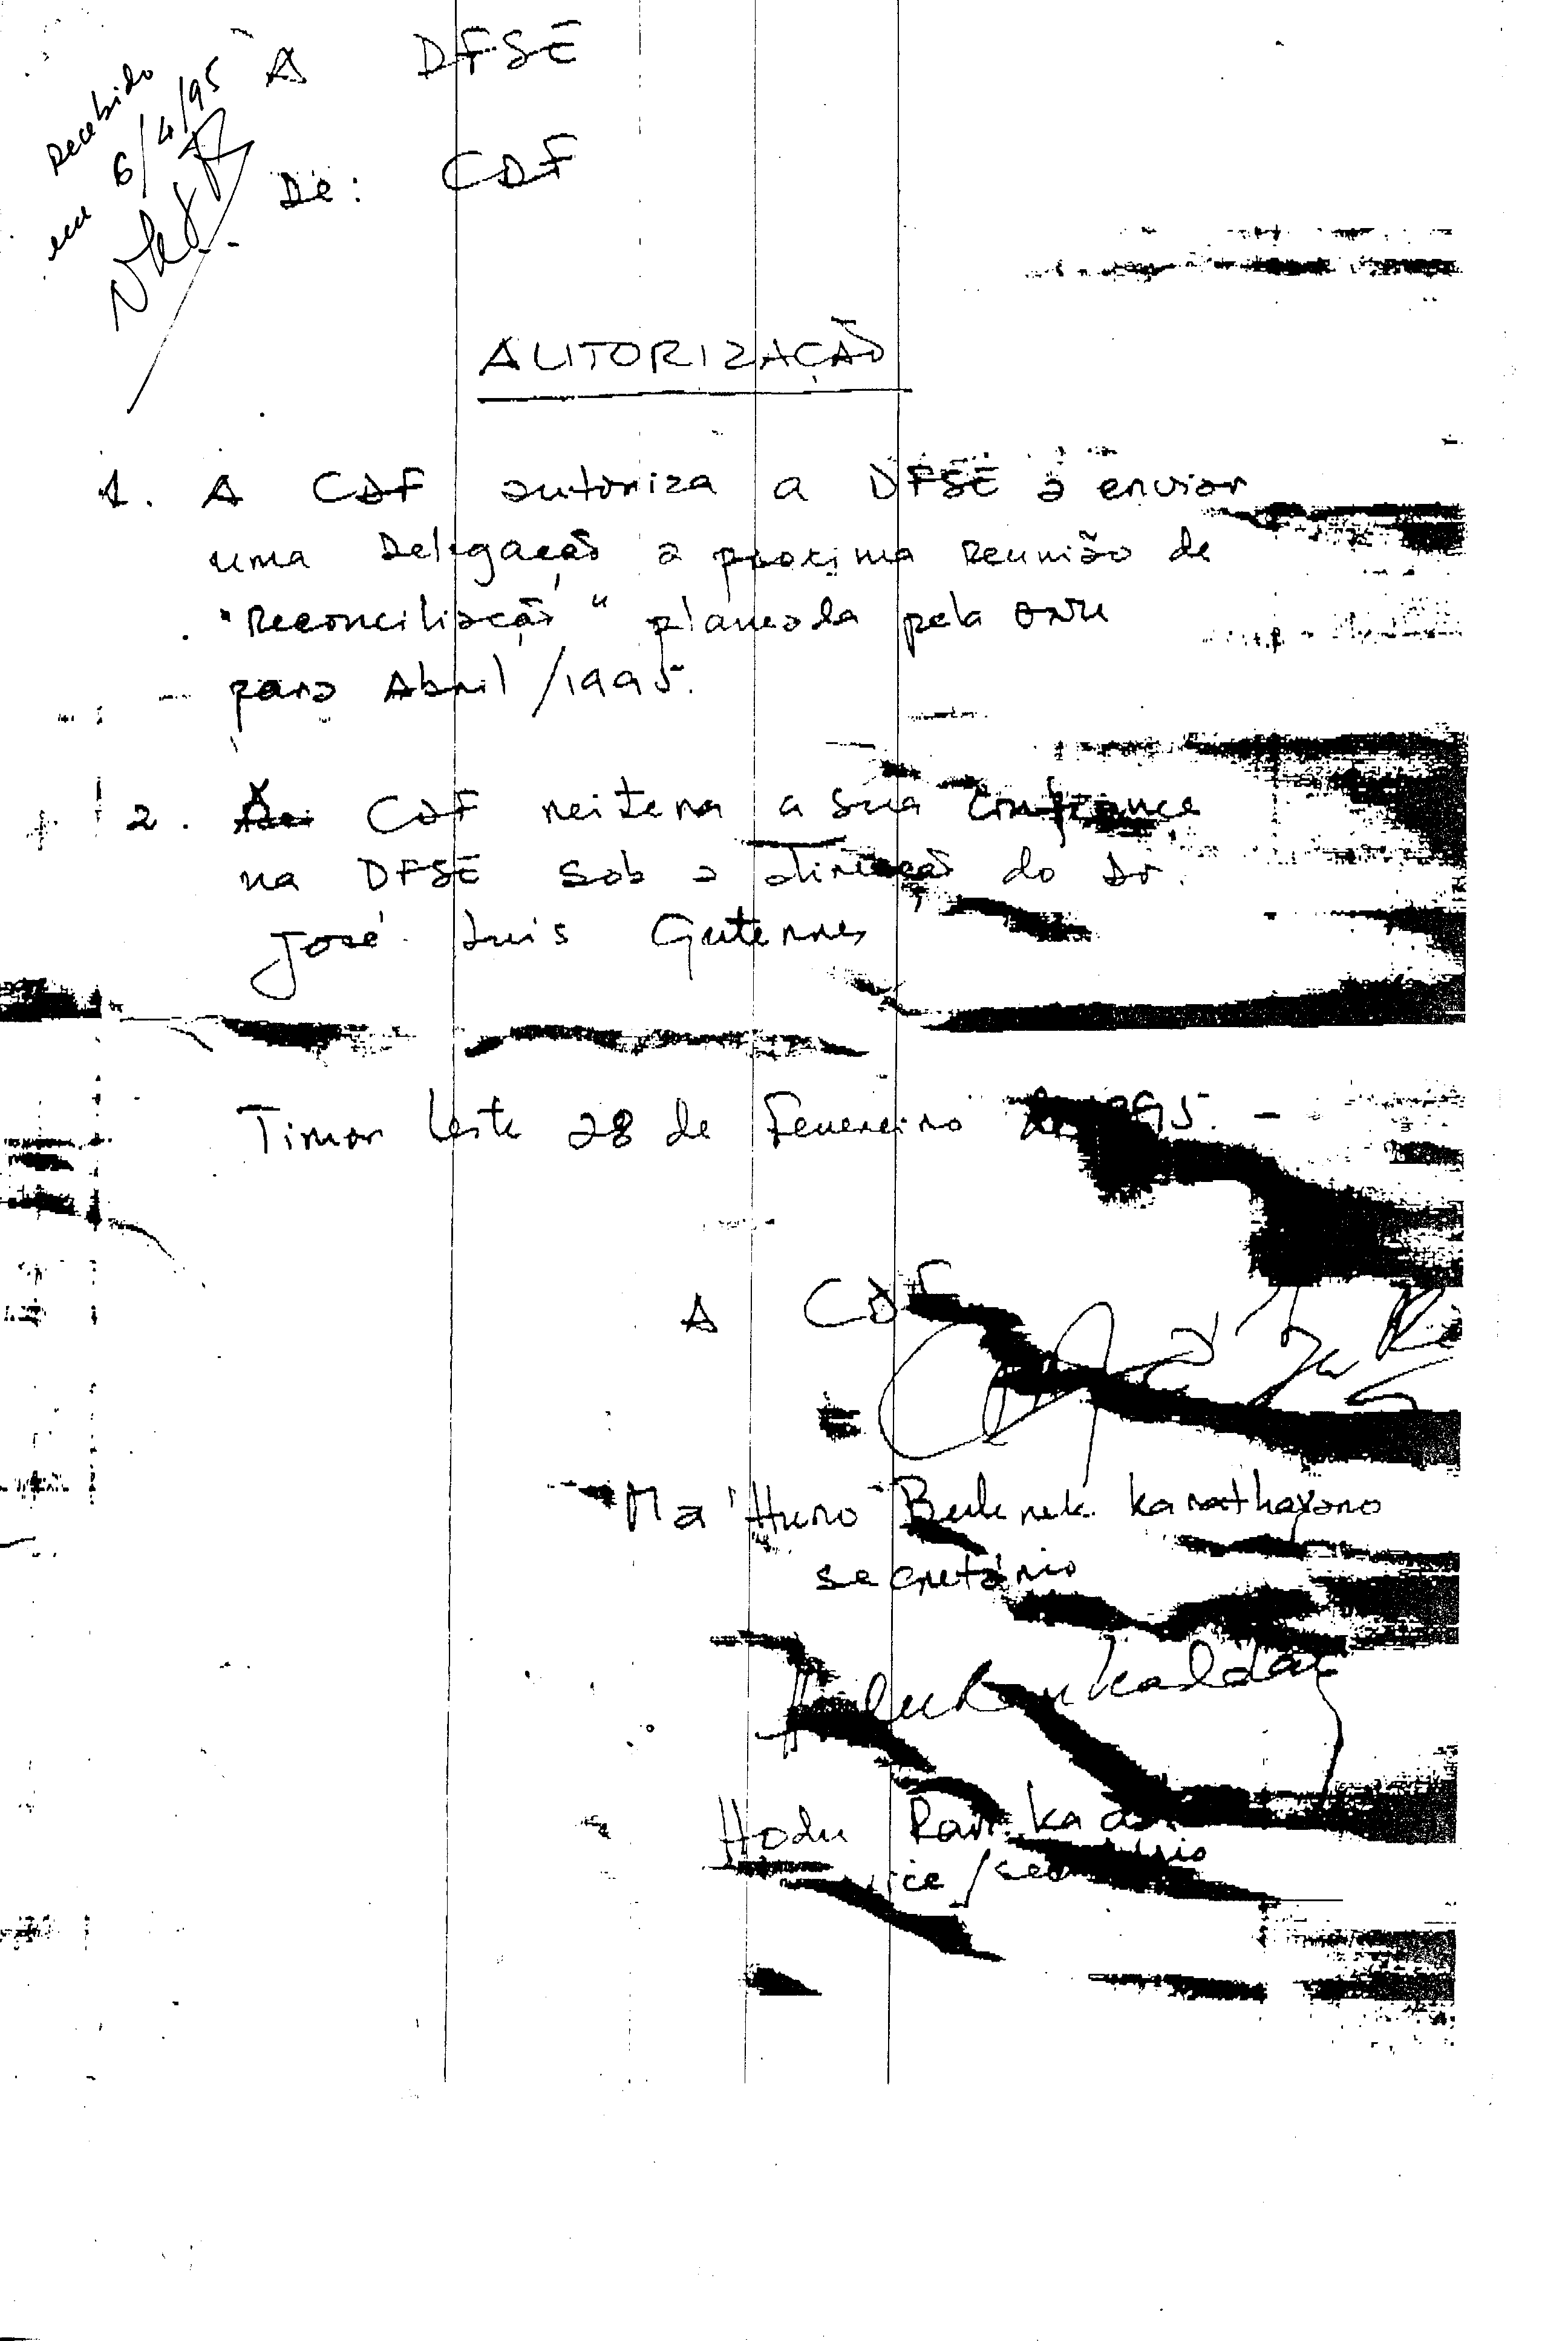 Recebido
em 6/4/95
À DFSE
De: CDF
AUTORIZAÇÃO
1. A CDF autoriza a DFSE a enviar
uma Delegação a proxima Reunião de
"Reconciliação" planeada pela ONU
para Abril /1995.
2. A CDF reitera a sua confiança
na DFSE sob a direcção do Dr.
José Luis Guterres
Timor Leste 28 de Fevereiro de 1995. -
A CDF
Ma'Huno Bulerek Karathayano
secretário
Hodu Ran Kadalak
Hodu Ran Ka
vice/secretário